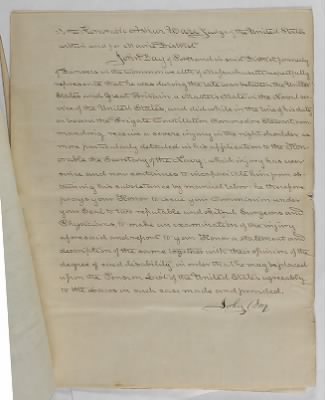 To the Honorable Ashur Ware Judge of the United States
within and for Maine District
John Day of Portland in said District formerly
of Danvers in the Commonwealth of Massachusetts respectfully
represents that he was during the late war between the United
States and Great Britain a Master's Mate in the Naval ser-
vice of the United States, and did while in the line of his duty
on board the Frigate Constitution Commodore Stewart com-
manding receive a severe injury in the right shoulder as
more particularly detailed in his application to the Hon-
orable the Secretary of the Navy, which injury has ever
since and now continues to incapacitate him from ob-
taining his subsistence by manual labor he therefore
prays your Honor to issue your Commission under
your Seal to two reputable and skilful Surgeons and
Physicians to make an examination of the injury
aforesaid and report to your Honor a statement and
description of the same together with their opinion of the
degree of said disability in order that he may be placed
upon the Pension List of the United States agreeably
to the Laws in such case made and provided.
John Day